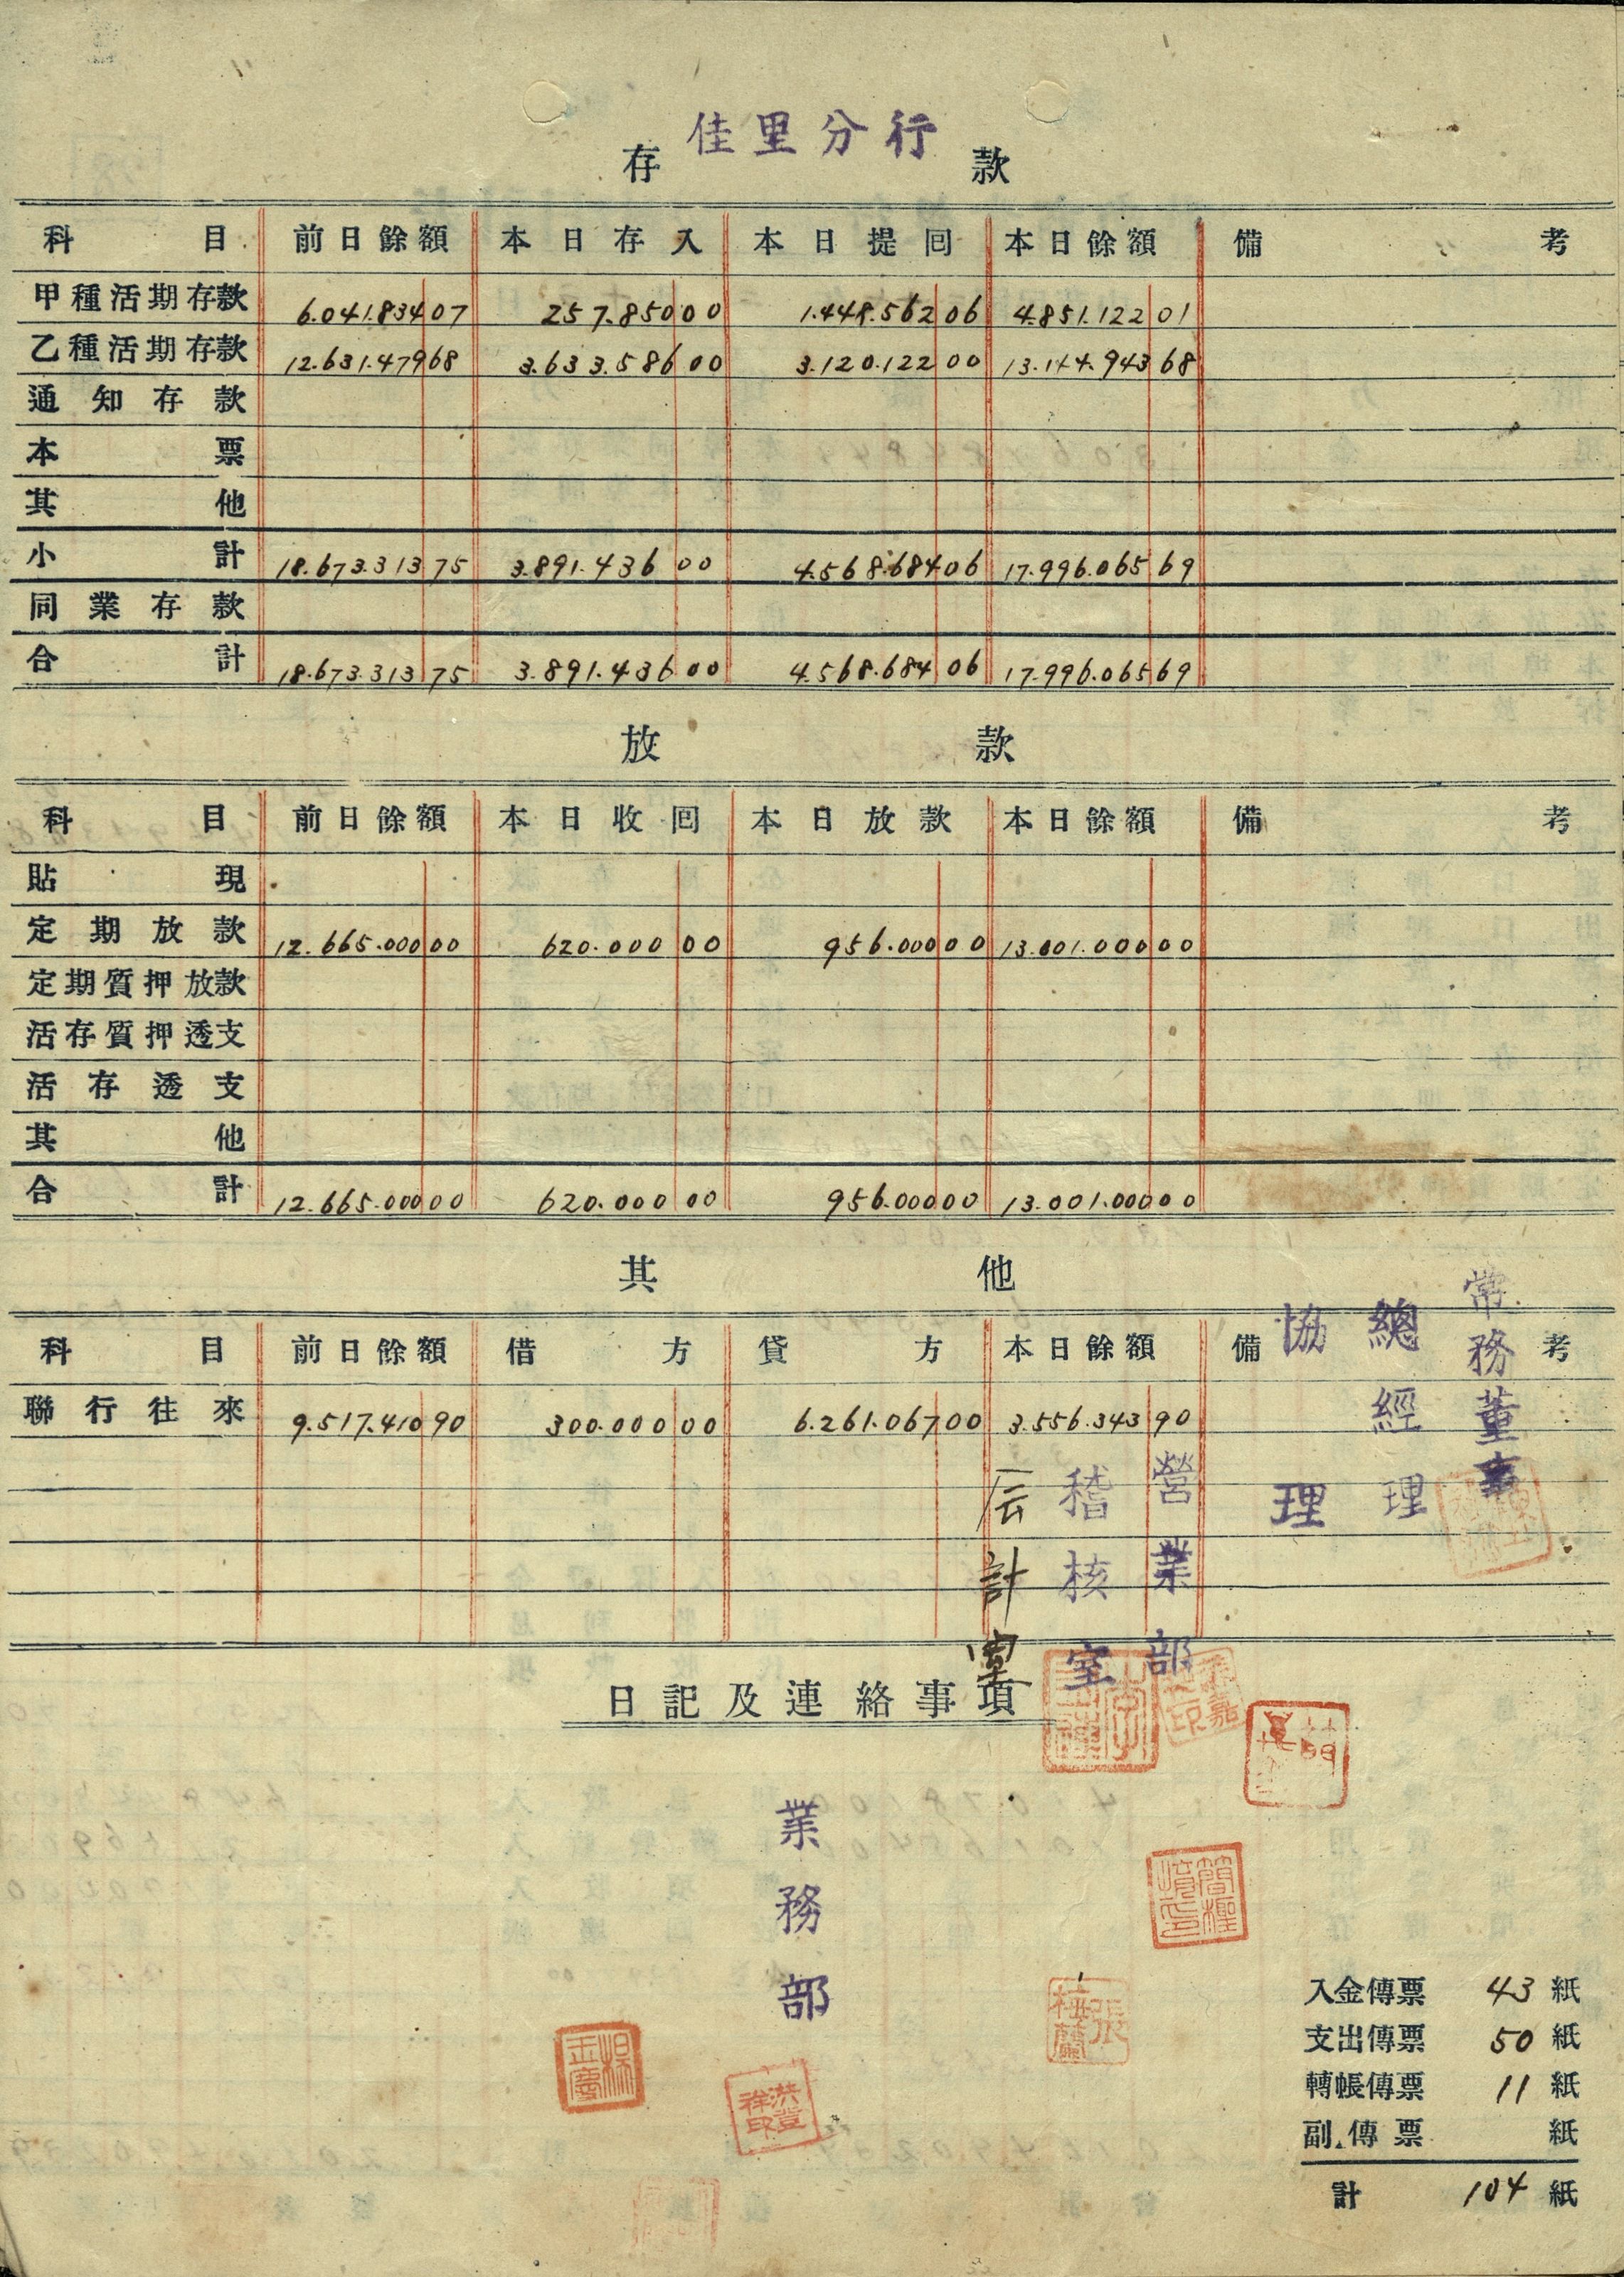 佳里分行
存 款
科目 前日餘額 本日存入 本日提囘 本日餘額 備考
甲種活期存款 6.041.834 07 257.850 00 1.448.562 06 4.851.122 01
乙種活期存款 12.631.479 68 3.633.586 00 3.120.122 00 13.144.943 68
通知存款
本票
其他
小計 18.673.313 75 3.891.436 00 4.568.684 06 17.996.065 69
同業存款
合計 18.673.313 75 3.891.436 00 4.568.684 06 17.996.065 69
放 款
科目 前日餘額 本日收囘 本日放款 本日餘額 備考
貼現
定期放款 12.665.000 00 620.000 00 956.000 00 13.001.000 00
定期質押放款
活存質押透支
活存透支
其他
合計 12.665.000 00 620.000 00 956.000 00 13.001.000 00
其 他
科目 前日餘額 借方 貸方 本日餘額 備考
聯行往來 9.517.410 90 300.000 00 6.261.067 00 3.556.343 90
常務董事
總經理
協理
營業部
稽核室
計室
日記及連絡事項
業務部
張
洪登
印
入金傳票 43 紙
支出傳票 50 紙
轉帳傳票 11 紙
副傳票 紙
計 104 紙